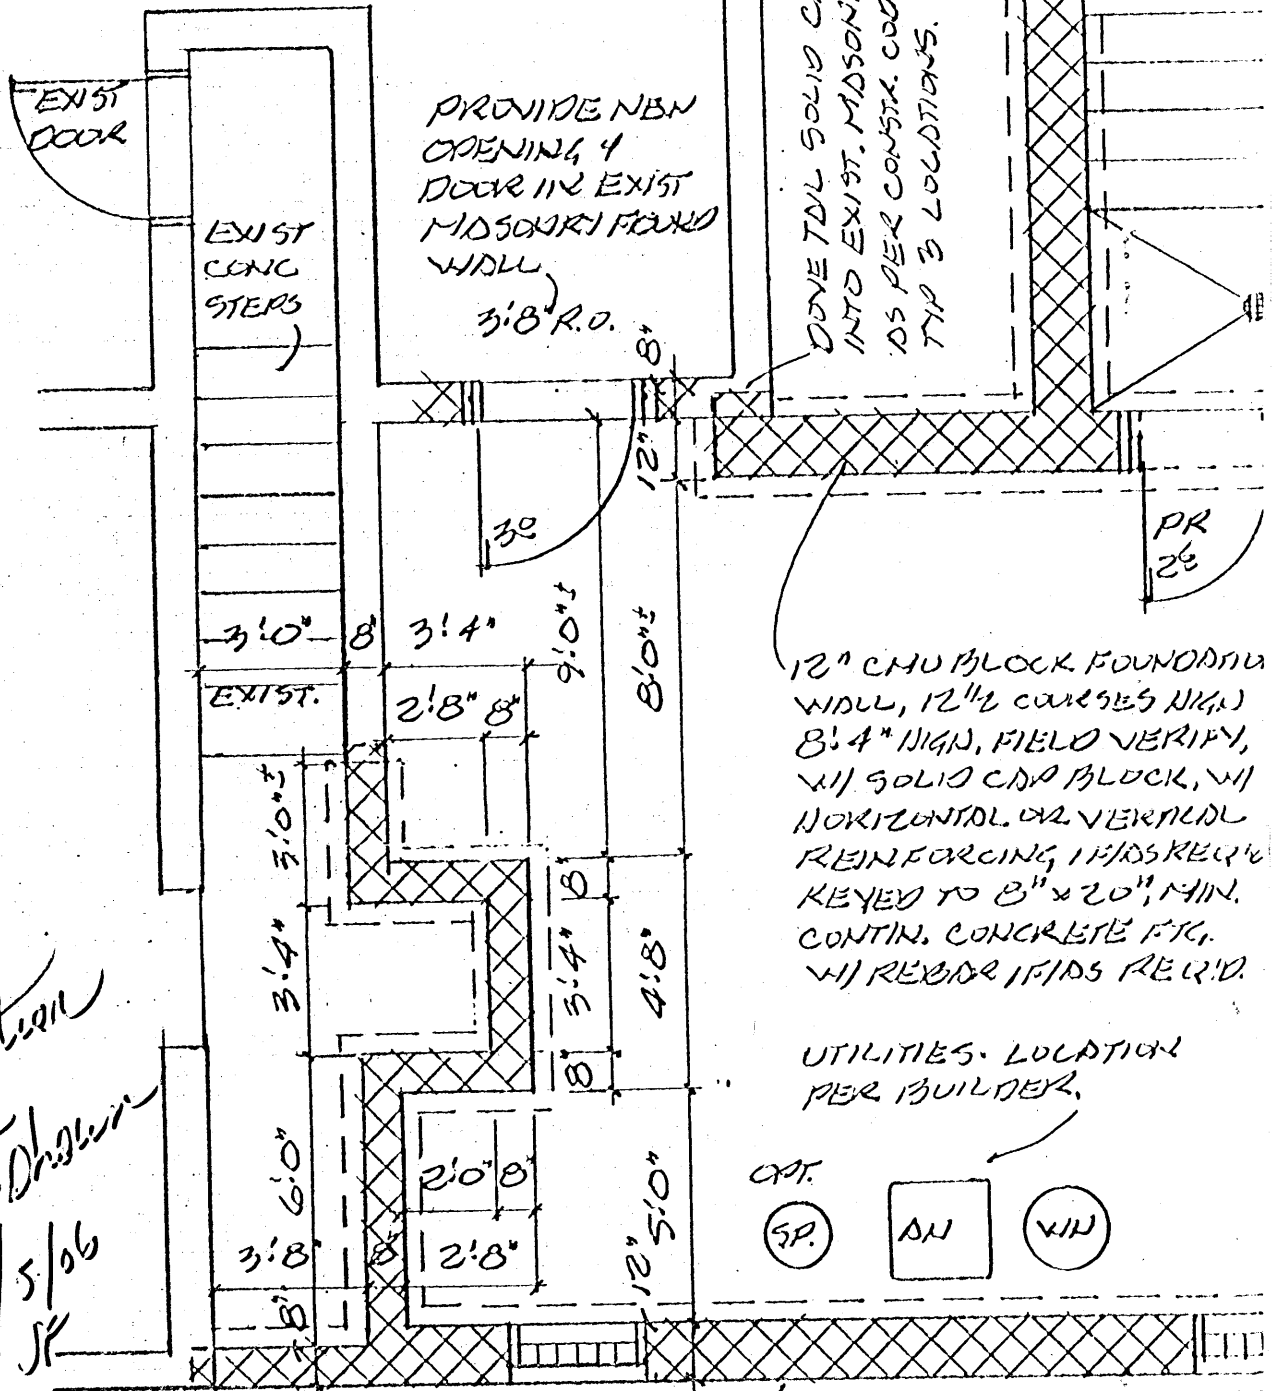 EXIST
DOOR
EXIST
CONC
STEPS
PROVIDE NEW
OPENING &
DOOR IN EXIST
MASONRY FOUND
WALL
3'8" R.O.
DOVE TAIL SOLID
INTO EXIST. MASON
AS PER CONSTR. COD
TYP 3 LOCATIONS.
8"
12"
3º
PR
2⁶
3'0"
8"
3'4"
EXIST.
2'8"
8"
9'0"±
8'0"±
12" CMU BLOCK FOUNDATIO
WALL, 12 1/2 COURSES HIGH
8'4" HIGH, FIELD VERIFY,
W/ SOLID CAP BLOCK, W/
HORIZONTAL OR VERTICAL
REINFORCING IF/AS REQ'D
KEYED TO 8" x 20", MIN.
CONTIN. CONCRETE FTG.
W/ REBAR IF/AS REQ'D.
3'0"±
8"
3'4"
3'4"
4'8"
8"
UTILITIES. LOCATION
PER BUILDER.
6'0"
2'0"
8"
5'0"
OPT.
SP.
AH
WH
3'8"
8"
2'8"
12"
8"
5/06